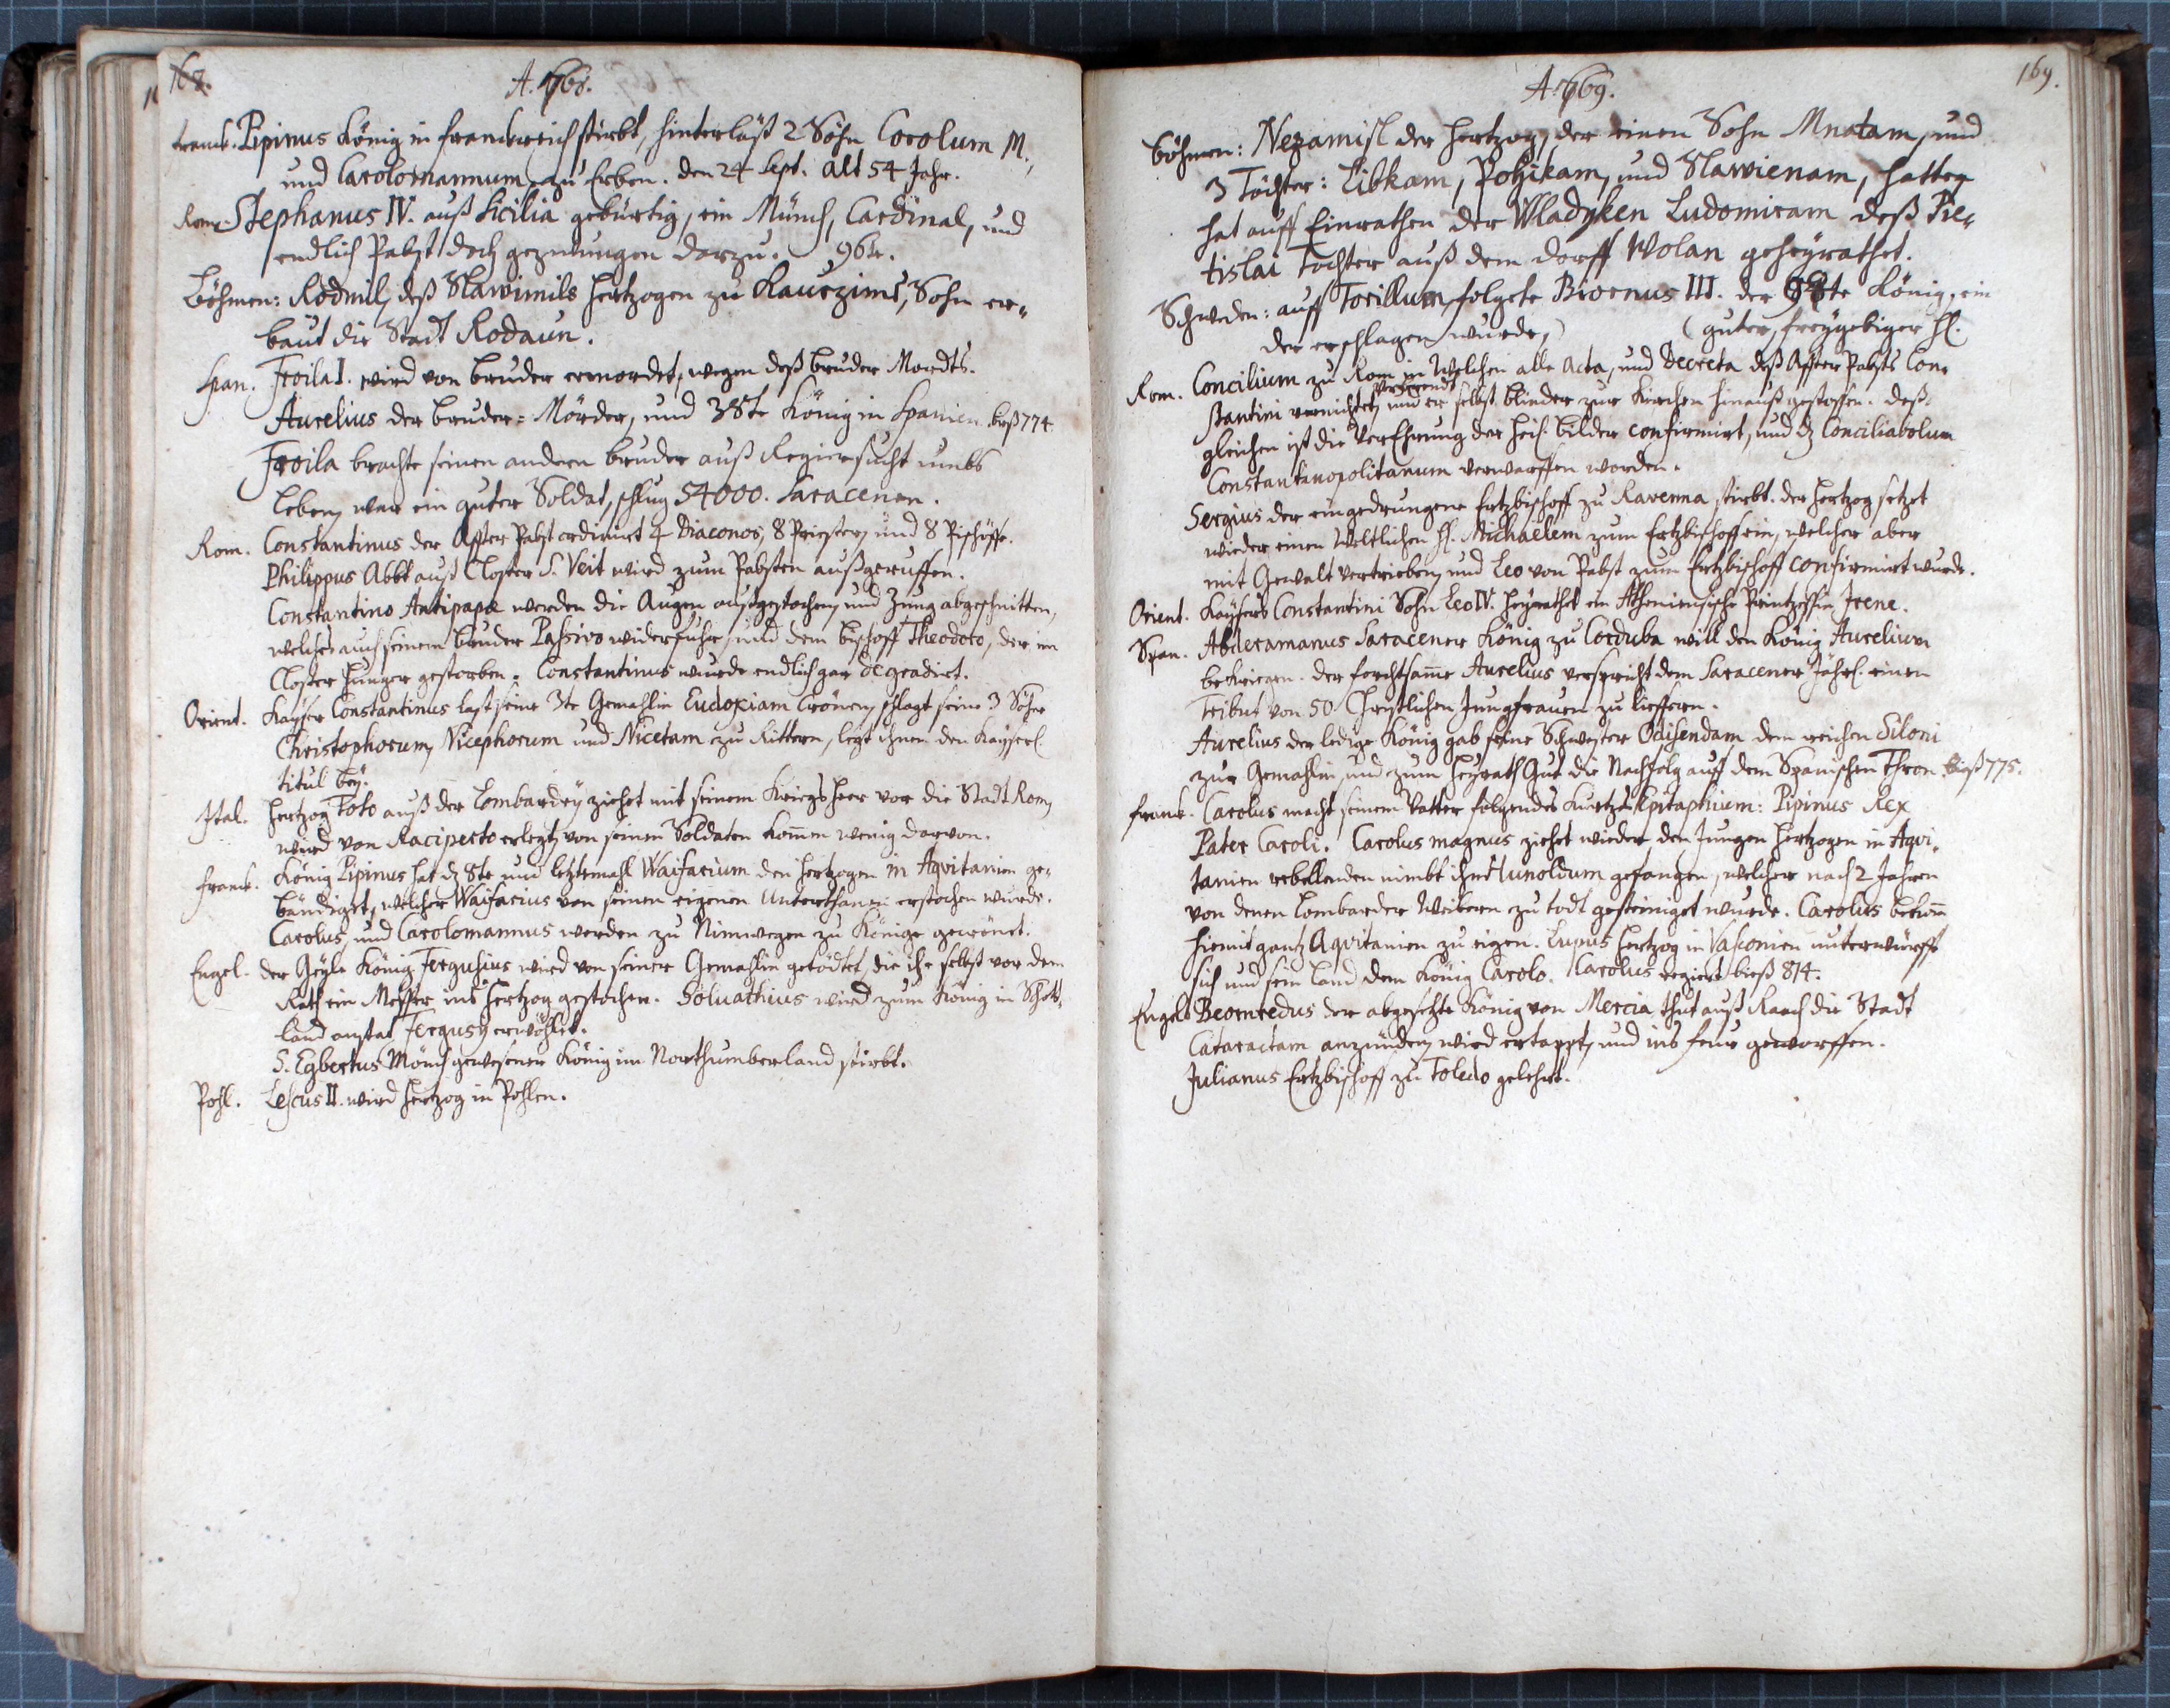 168.
A. 768.
Franck. Pipinus König in Franckreich stirbt, hinterläst 2 Söhn Carolum M.,
und Carolomannum zu Erben. den 24 Sept. alt 54 Jahr.
Rom. Stephanus IV. auß Sicilia gebürtig, ein Münch, Cardinal, und
endlich Pabst doch gezwungen darzu. 96ster.
Böhmen: Rodmil, deß Slawimils Hertzogen zu Kaurzims, Sohn er-
baut die Stadt Rodaun.
Span. Froila I. wird von bruder ermordet, wegen deß bruder Mordts.
Aurelius der bruder-Mörder, und 38te König in Spanien. bieß 774.
Froila brachte seinen andern bruder auß Regiersucht umbs
Leben, war ein guter Soldat, schlug 54000. Saracenen.
Rom. Constantinus der After Pabst ordinirt 4 Diaconos, 8 Priester, und 8 Pischöffe.
Philippus Abbt auß Closter S. Veit wird zum Pabsten außgeruffen.
Constantino Antipapæ werden die Augen außgestochen, und Zung abgeschnitten,
welches auch seinem bruder Passivo widerfuhr, und dem bischoff Theodoro, der im
Closter Hunger gestorben. Constantinus wurde endlich gar degradirt.
Orient. Kayser Constantinus last seine 3te Gemahlin Eudoxiam Crönen, schlagt seine 3 Söhne
Christophorum, Nicephorum und Nicetam zu Rittern, legt ihnen den Kayserl.
titul bey.
Ital. Hertzog Toto auß der Lombardey ziehet mit seinem Kriegs Heer vor die Stadt Rom,
wird von Raciperto erlegt, von seinen Soldaten kommen wenig darvon.
Franck. König Pipinus hat dz 8te und letztemahl Waifarium den Hertzogen in Aqvitanien ge-
bändiget, welcher Waifarius von seinen eigenen Unterthanen erstochen wurde.
Carolus, und Carolomannus werden zu Nimwegen zu Könige gecrönet.
Engel. der Geyle König Fergusius wird von seiner Gemahlin getödtet, die ihr selbst vor dem
Rath ein Messer ins Hertzog gestochen. Solvathius wird zum König in Schott-
land anstat Fergusy erwöhlet.
S. Egbertus Mönch gewesener König im Northumberland stirbt.
Pohl. Lescus II. wird Hertzog in Pohlen.
169.
A. 769.
Böhmen: Nezamisl der Hertzog, der einen Sohn Mnatam, und
3 Töchter: Libkam, Pohikam, und Slawienam, hatte,
hat auff Einrathen der Wladyken Ludomiram deß Pie-
tislai Tochter auß dem dorff Wolan geheyrathet.
Schweden: auff Torillum folgete Biornus III. der 58te König, ein
der erschlagen wurde, (guter, freygebiger H.
Rom. Concilium zu Rom in Welchen alle Acta, und Decreta deß After Pabsts Con-
stantini vernichtet, und er selbst blinder zur Kirchen hinauß gestossen. deß-
gleichen ist die Verehrung der Heil. bilder confirmirt, und dz Conciliabolum
Constantinopolitanum verworffen worden.
Sergius der eingedrungene Ertzbischoff zu Ravenna stirbt. der Hertzog setzet
wieder einen Weltlichen H. Michaelem zum Ertzbischoff ein, welcher aber
mit Gewalt vertrieben, und Leo von Pabst zum Ertzbischoff confirmirt wurde.
Orient. Kaysers Constantini Sohn Leo IV. heyrathet ein Atheniensische Printzessin Irene.
Span. Abderamanus Saracener König zu Corduba will den König Aurelium
bekriegen. der forchtsamme Aurelius verspricht dem Saracener Jährl. einen
Tribut von 50 Christlichen Jungfrauen zu lieffern.
Aurelius der ledige König gab seine Schwester Odisendam dem reichen Siloni
zur Gemahlin, und zum Heyrath Gut die Nachfolg auff dem Spanischen Thron bieß 775.
Franck. Carolus macht seinem Vatter folgendes Kurtzes Epitaphium: Pipinus Rex
Pater Caroli. Carolus magnus ziehet wieder den Jungen Hertzogen in Aqvi-
tanien rebellenden nimbt ihn Hunoldum gefangen, welcher nach 2 Jahren
von denen Lombarder Weibern zu todt gesteiniget wurde. Carolus bekomm
hiemit gantz Aqvitanien zu eigen. Lupus Hertzog in Vasconien unterwürfft
sich und sein Land dem König Carolo. Carolus regiert bieß 814.
Engel. Beornredus der abgesetzte König von Mercia thut auß Raach die Stadt
Cataractam anzünden, wird ertappt, und ins feuer geworffen.
Julianus Ertzbischoff zu Toledo gelehrt.